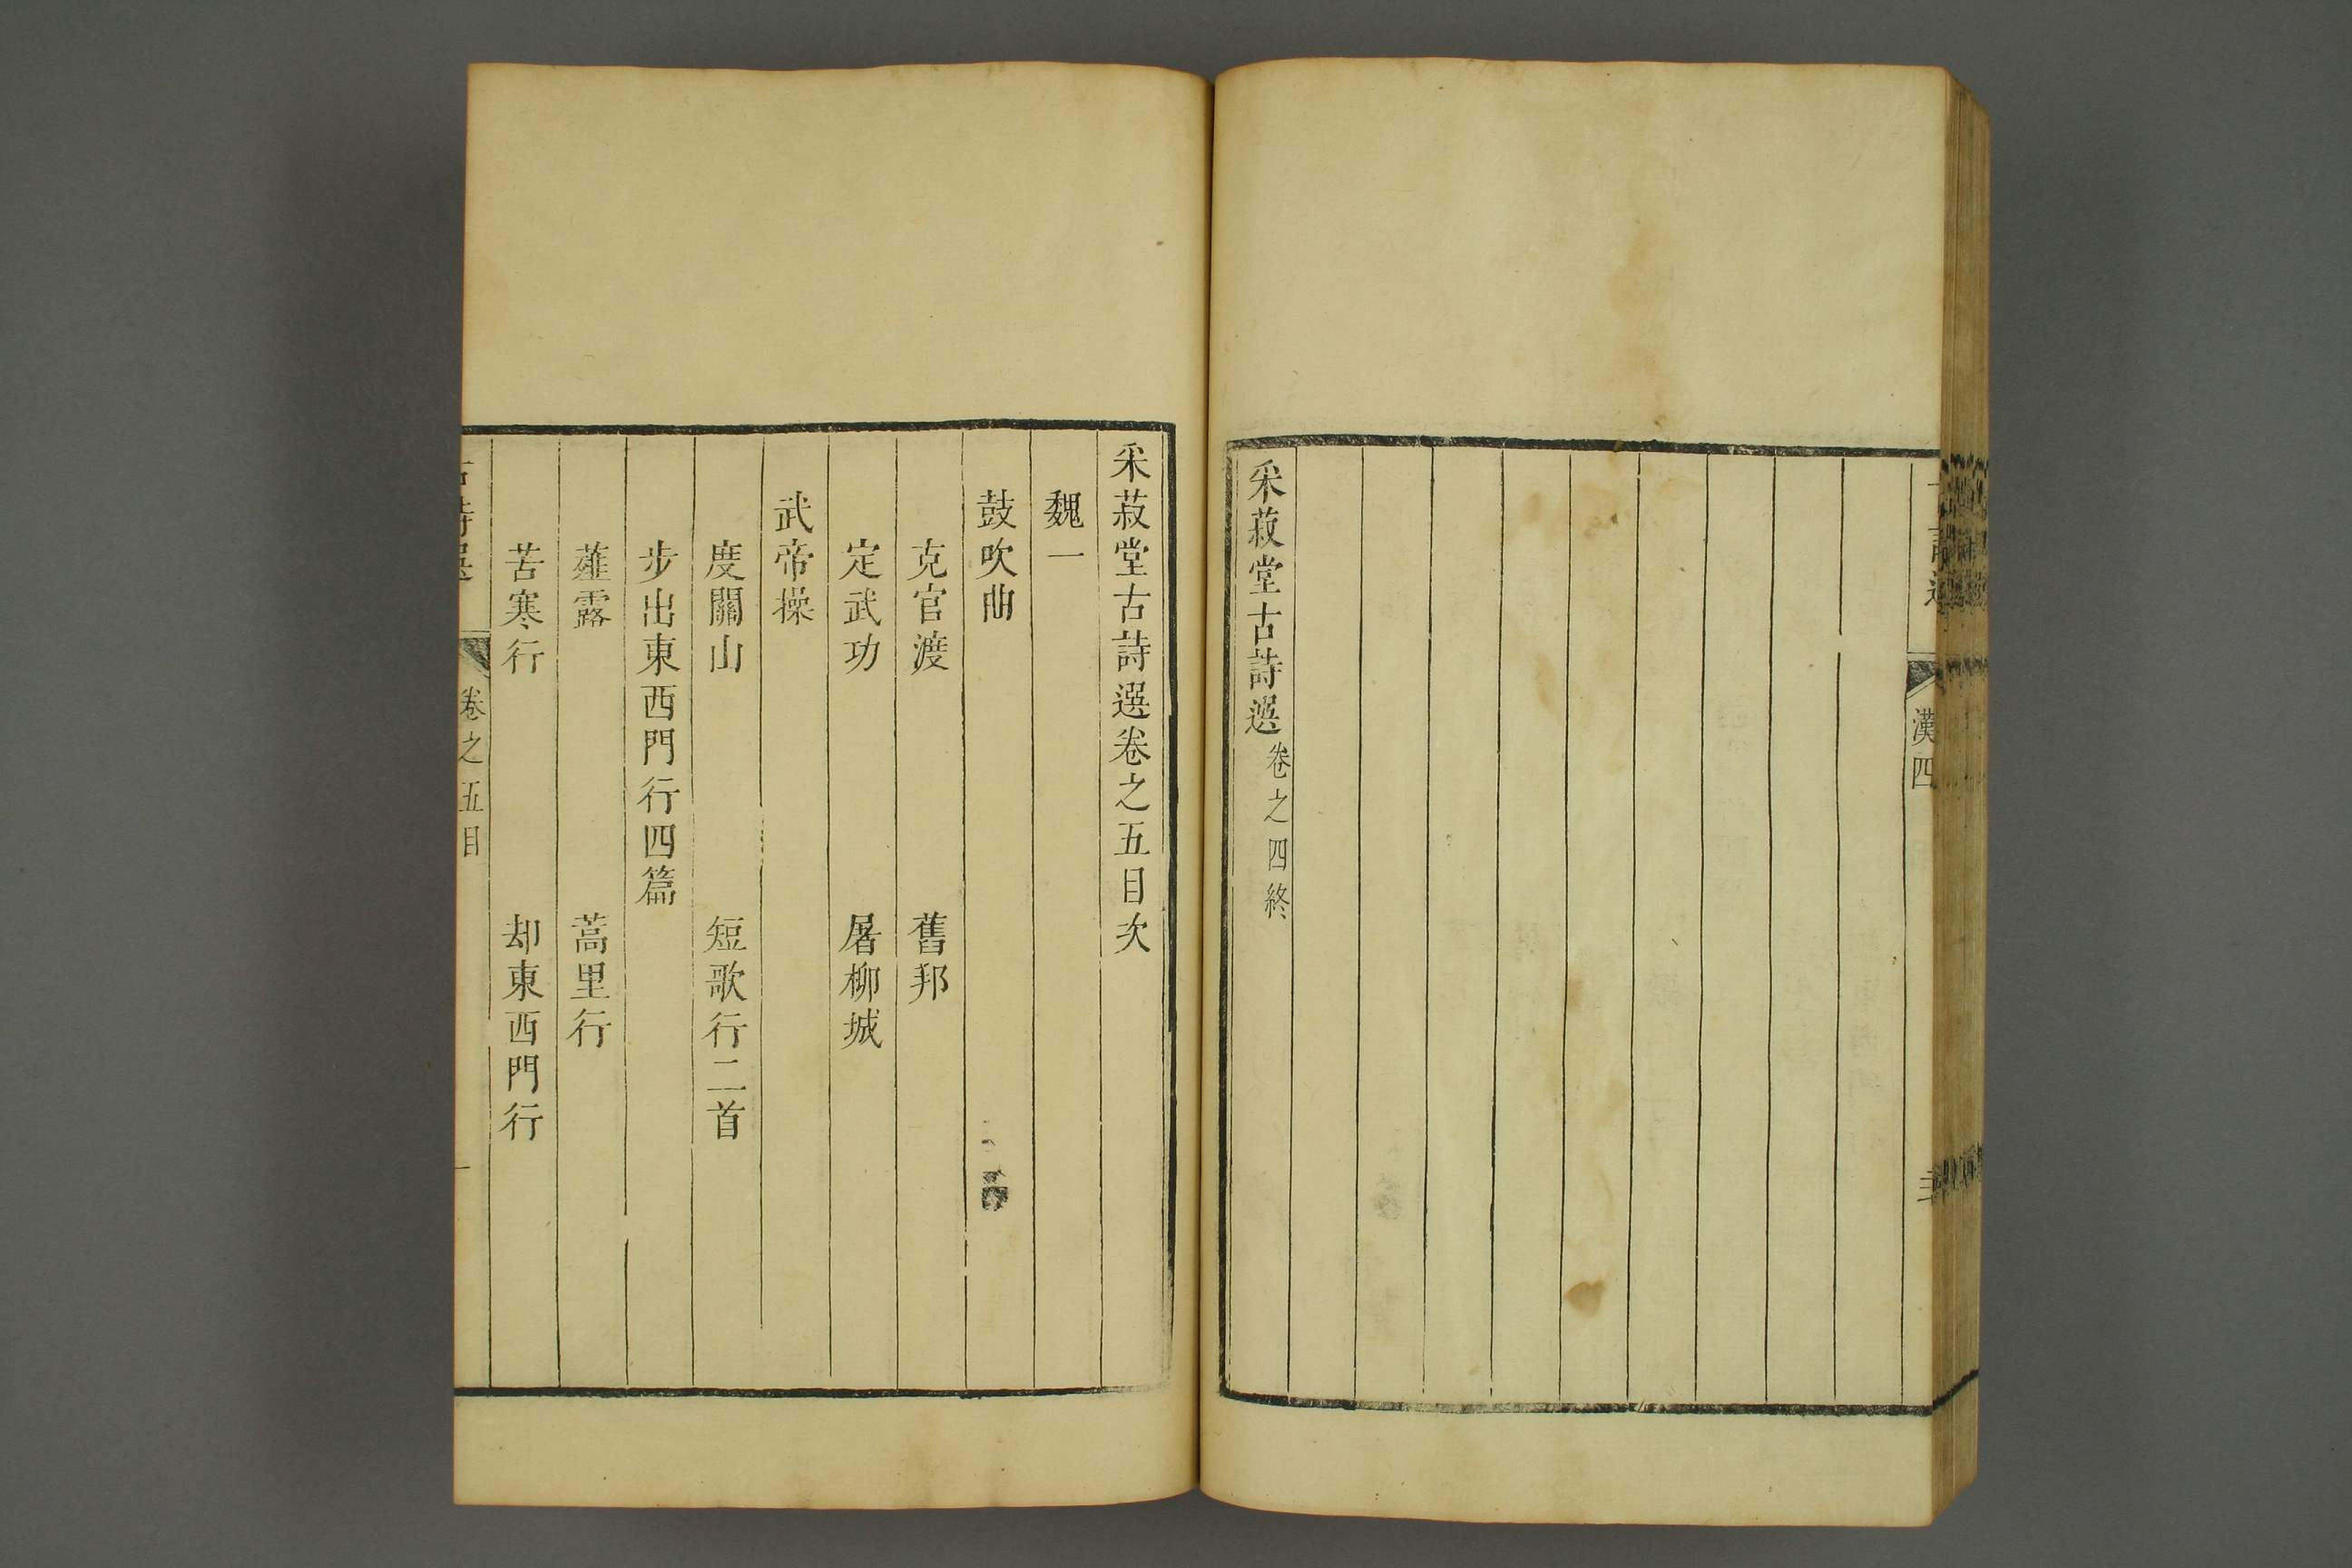 漢四
采菽堂古詩選卷之四終
采菽堂古詩選卷之五目次
魏一
鼓吹曲
克官渡 舊邦
定武功 屠柳城
武帝操
度關山 短歌行二首
步出東西門行四篇
薤露 蒿里行
苦寒行 却東西門行
古詩選 卷之五目 一